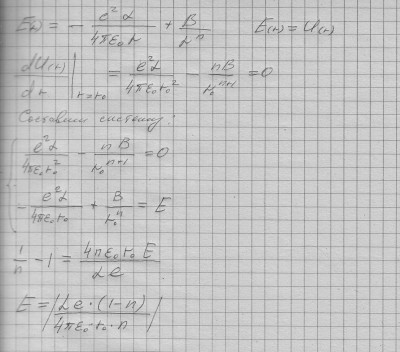 E(r) = - e²α / 4πε₀r + B / rⁿ   E(r) = U(r)
dU(r) / dr |r=r₀ = e²α / 4πε₀r₀² - nB / r₀ⁿ⁺¹ = 0
Составим систему:
{ e²α / 4πε₀r₀² - nB / r₀ⁿ⁺¹ = 0
- e²α / 4πε₀r₀ + B / r₀ⁿ = E
1/n - 1 = 4πε₀r₀E / αe
E = | αe·(1-n) / 4πε₀·r₀·n |